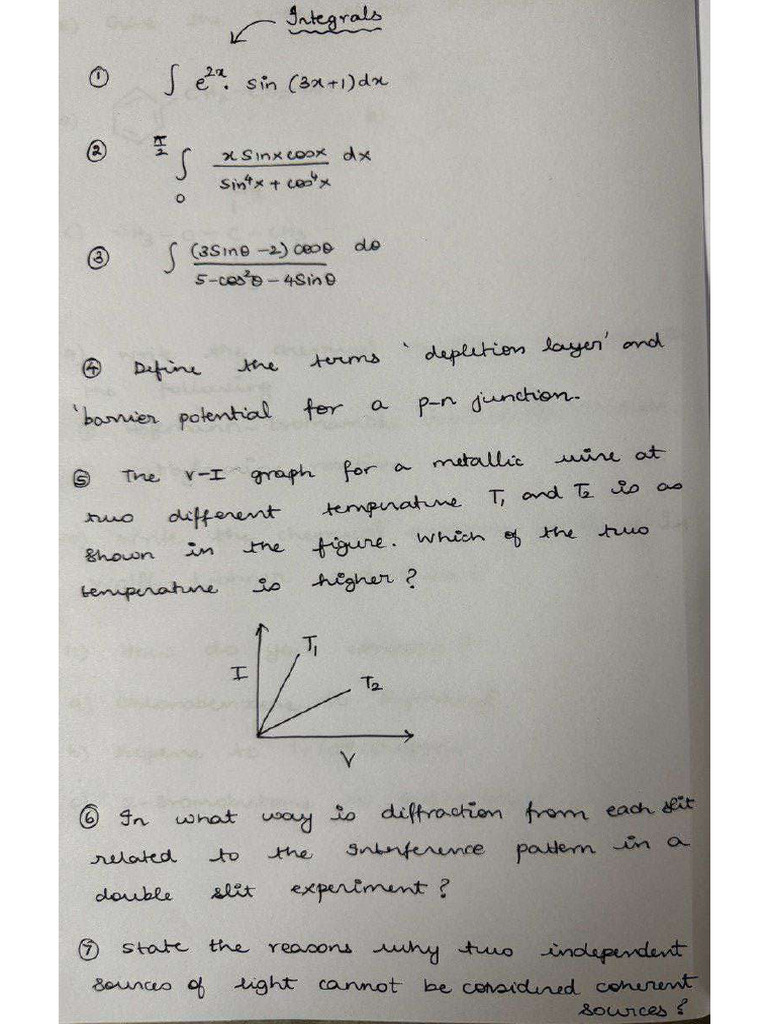 Integrals
① ∫ e^2x. sin (3x+1)dx
② π/2 ∫ 0 x sinx cosx / sin⁴x + cos⁴x dx
③ ∫ (3sinθ -2) cosθ / 5-cos²θ - 4sinθ dθ
④ Define the terms 'depletion layer' and
'barrier potential for a p-n junction.
⑤ The V-I graph for a metallic wire at
two different temperature T₁ and T₂ is as
shown in the figure. Which of the two
temperature is higher?
T₁
I
T₂
V
⑥ In what way is diffraction from each slit
related to the interference pattern in a
double slit experiment?
⑦ State the reasons why two independent
sources of light cannot be considered coherent
sources?